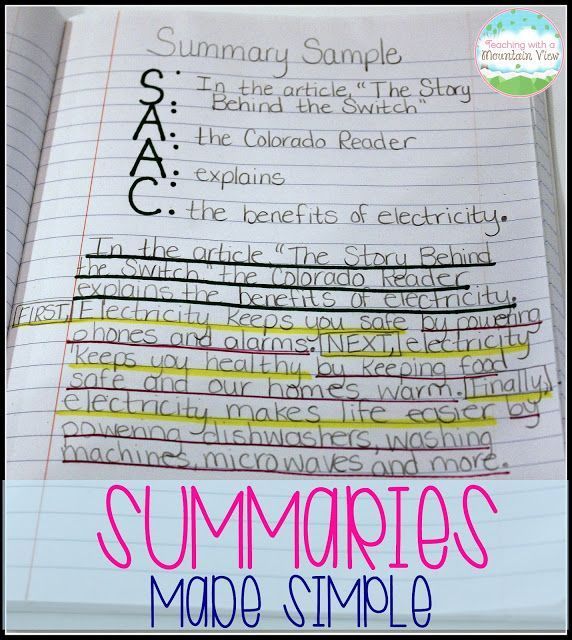 Teaching with a
Mountain View
Summary Sample
S: In the article, "The Story
Behind the Switch"
A: the Colorado Reader
A: explains
C: the benefits of electricity.
In the article, "The Story Behind
the Switch" the Colorado Reader
explains the benefits of electricity.
FIRST, Electricity keeps you safe by powering
phones and alarms. NEXT, electricity
keeps you healthy by keeping food
safe and our homes warm. Finally,
electricity makes life easier by
powering dishwashers, washing
machines, microwaves and more.
SUMMARIES
MADE SIMPLE